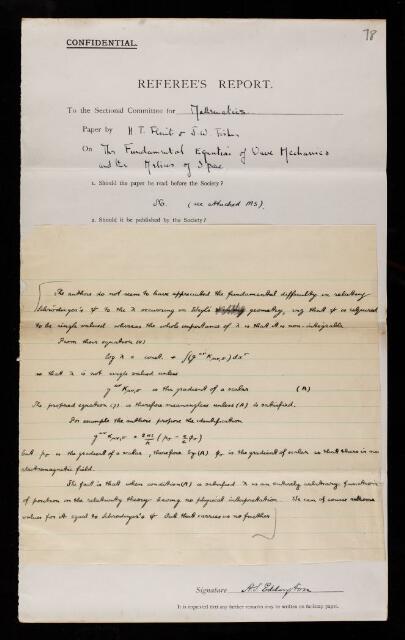 78
CONFIDENTIAL.
REFEREE'S REPORT.
To the Sectional Committee for Mathematics
Paper by H T. Flint & J. W. Fisher
On The Fundamental Equation of Wave Mechanics
and the Metrics of Space
1. Should the paper be read before the Society?
No. (see attached MS).
2. Should it be published by the Society?
The authors do not seem to have appreciated the fundamental difficulty in relating
Schrodinger's ψ to the λ occurring in Weyl's geometry, viz that ψ is required
to be single valued whereas the whole importance of λ is that it is non-integrable
From their equation (6)
log λ = const. + ∫(g^{μν} K_{μν,σ}) dx^σ
so that λ is not single valued unless
g^{μν} K_{μν,σ} is the gradient of a scalar (A)
The proposed equation (7) is therefore meaningless unless (A) is satisfied.
For example the authors propose the identification
g^{μν} K_{μν,σ} = 2πi/h (p_σ − e/c φ_σ)
but p_σ is the gradient of a scalar, therefore by (A) φ_σ is the gradient of scalar so that there is no
electromagnetic field.
The fact is that when condition (A) is satisfied λ is an entirely arbitrary function
of position in the relativity theory having no physical interpretation. We can of course
values for it equal to Schrodinger's ψ but that carries us no further
Signature A.S. Eddington
It is requested that any further remarks may be written on the last page.